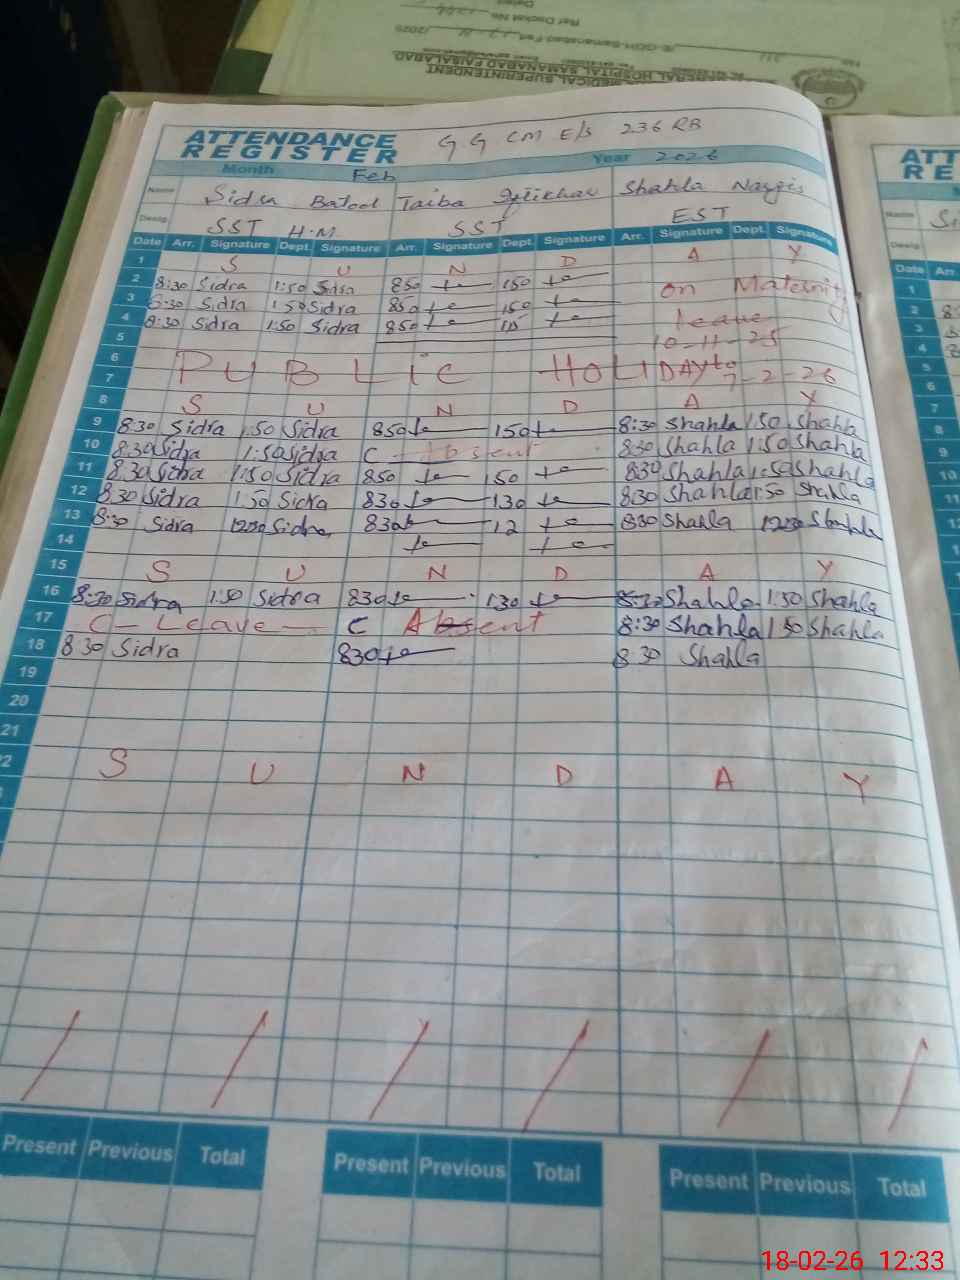 MEDICAL SUPERINTENDENT
GENERAL HOSPITAL SAMANABAD FAISALABAD
/E-GGH-Samanabad Fsd
/2025
Ref Docket No.
ATTENDANCE REGISTER
G.G CM E/S 236 RB
Month Feb Year 2026
Name Sidra Batool Taiba Iftikhar Shahla Nargis
Desig. SST H.M. SST EST
Date Arr. Signature Dept. Signature Arr. Signature Dept. Signature Arr. Signature Dept. Signature
1 S U N D A Y
2 8:30 Sidra 1:50 Sidra 850 150 on Maternity
3 8:30 Sidra 1:50 Sidra 850 150 leave
4 8:30 Sidra 1:50 Sidra 850 10-11-25
5 to
6 PUBLIC HOLIDAY 7-2-26
7
8 S U N D A Y
9 8:30 Sidra 1:50 Sidra 850 150 8:30 Shahla 1:50 Shahla
10 8:30 Sidra 1:50 Sidra C - Absent 8:30 Shahla 1:50 Shahla
11 8:30 Sidra 1:50 Sidra 850 150 8:30 Shahla 1:50 Shahla
12 8:30 Sidra 1:50 Sidra 830 130 8:30 Shahla 1:50 Shahla
13 8:30 Sidra 1230 Sidra 830 12 830 Shahla 1230 Shahla
14
15 S U N D A Y
16 8:30 Sidra 1:30 Sidra 830 130 8:30 Shahla 1:30 Shahla
17 C - Leave C Absent 8:30 Shahla 1:50 Shahla
18 8:30 Sidra 830 8:30 Shahla
19
20
21
22 S U N D A Y
Present Previous Total Present Previous Total Present Previous Total
ATT
RE
Name Si
Desig.
Date Arr.
1
2 8
3
4
5
6
7
8
9
10
11
12
18-02-26 12:33